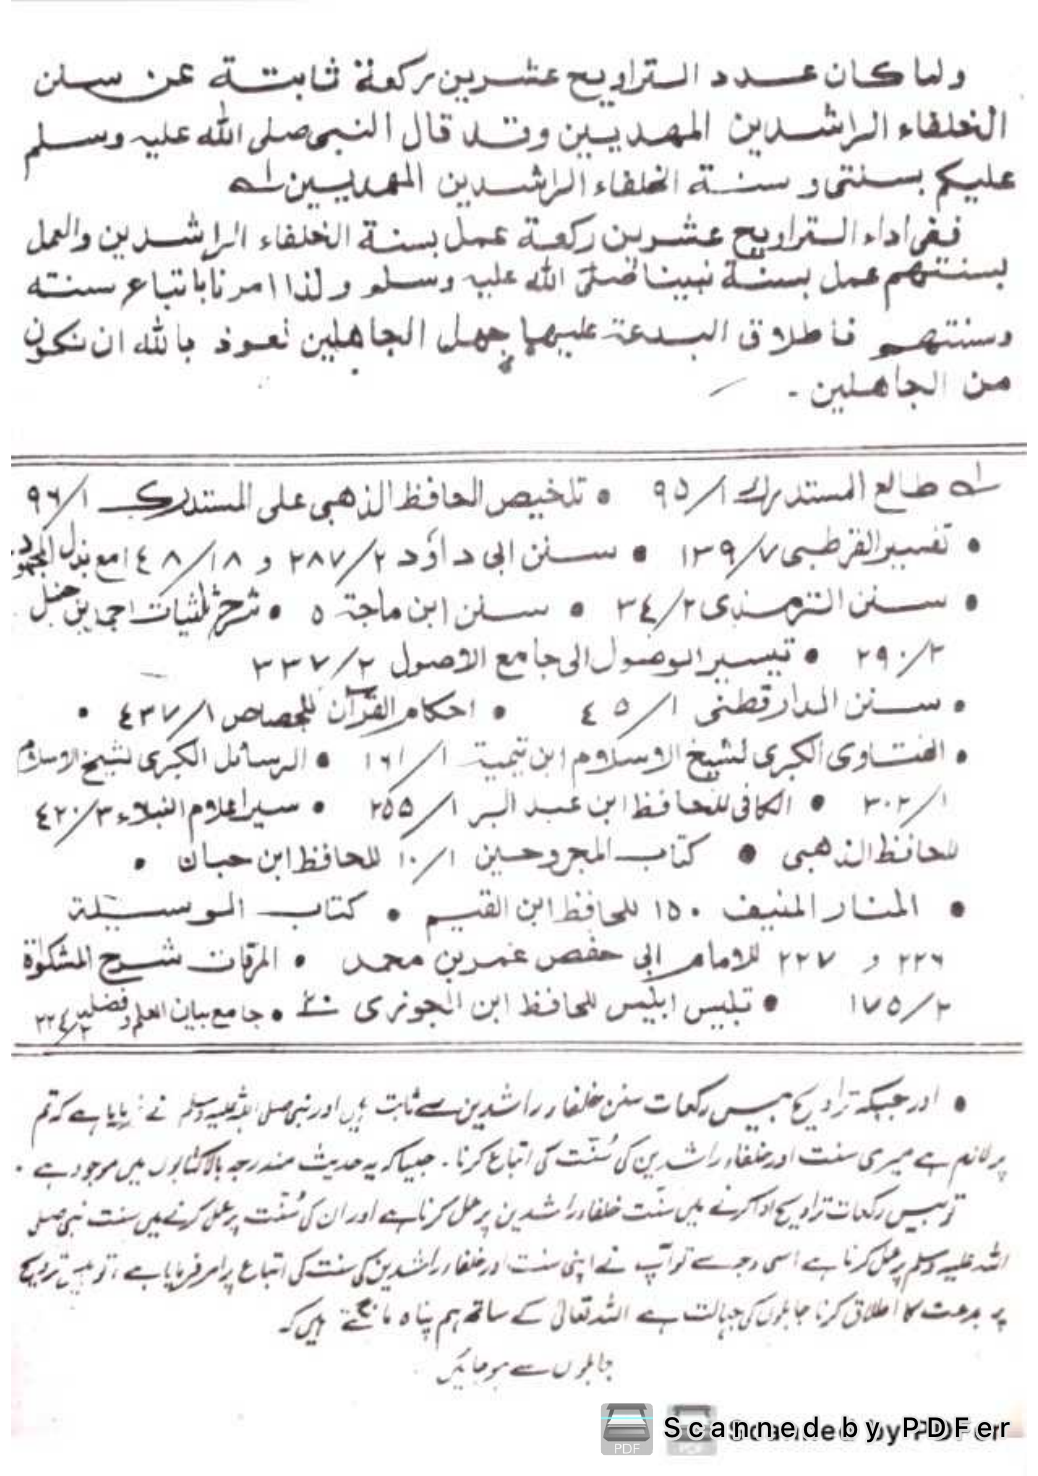 ولما كان عدد التراويح عشرين ركعة ثابتة عن سنن
الخلفاء الراشدين المهديين وقد قال النبى صلى الله عليه وسلم
عليكم بسنتى و سنة الخلفاء الراشدين المهديين له
ففى اداء التراويح عشرين ركعة عمل بسنة الخلفاء الراشدين والعمل
بسنتهم عمل بسنة نبينا صلى الله عليه وسلم ولذا امرنا باتباع سنته
وسنتهم فاطلاق البدعة عليها جهل الجاهلين نعوذ بالله ان نكون
من الجاهلين -
له طالع المستدرك ١/ ٩٥ • تلخيص الحافظ الذهبى على المستدرك ١/ ٩٦
• تفسير القرطبى ٧/ ١٣٩ • سنن ابى داؤد ٢/ ٢٨٧ و ١٨/ ٤٨ مع بذل المجهود
• سنن الترمذى ٢/ ٣٤ • سنن ابن ماجة ٥ • شرح ثلثيات احمد بن حنبل
٢/ ٢٩٠ • تيسير الوصول الى جامع الاصول ٢/ ٣٣٧
• سنن الدارقطنى ١/ ٤٥ • احكام القرآن للجصاص ١/ ٤٣٧ •
• الفتاوى الكبرى لشيخ الاسلام ابن تيمية ١/ ١٦١ • الرسائل الكبرى لشيخ الاسلام
١/ ٣٠٢ • الكافى للحافظ ابن عبد البر ١/ ٢٥٥ • سير اعلام النبلاء ٣/ ٤٢٠
للحافظ الذهبى • كتاب المجروحين ١/ ١٠ للحافظ ابن حبان •
• المنار المنيف ١٥٠ للحافظ ابن القيم • كتاب الوسيلة
٢٢٦ و ٢٢٧ للامام ابى حفص عمر بن محمد • المرقات شرح المشكوٰة
٢/ ١٧٥ • تبليس ابليس للحافظ ابن الجوزى • جامع بيان العلم وفضله ٢/ ٢٢٤
• اور جبکہ تراویح بیس رکعات سنن خلفاء راشدین سے ثابت ہیں اور نبی صلی اللہ علیہ وسلم نے فرمایا ہے کہ تم
پر لازم ہے میری سنت اور خلفاء راشدین کی سُنّت کی اتباع کرنا۔ جیسا کہ یہ حدیث مندرجہ بالا کتابوں میں موجود ہے ۔
تو بیس رکعات تراویح ادا کرنے میں سنّت خلفاء راشدین پر عمل کرنا ہے اور ان کی سُنّت پر عمل کرنے میں سنت نبی صلی
اللہ علیہ وسلم پر عمل کرنا ہے اسی وجہ سے تو آپ نے اپنی سنت اور خلفاء راشدین کی سنت کی اتباع پر امر فرمایا ہے، تو بیس تراویح
پر بدعت کا اطلاق کرنا جاہلوں کی جہالت ہے اللہ تعالیٰ کے ساتھ ہم پناہ مانگتے ہیں کہ
جاہلوں سے ہو جائیں
Scanned by PDFer